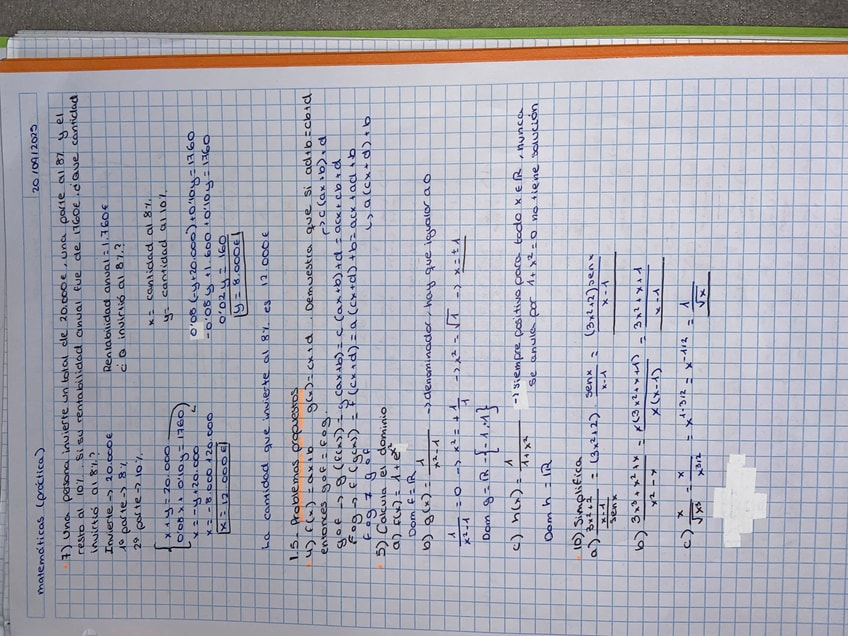 matemáticas (práctica) 20/09/2025
7) Una persona invierte un total de 20.000€, una parte al 8% y el
resto al 10%. Si su rentabilidad anual fue de 1760€. ¿Qué cantidad
invirtió al 8%?
Invierte -> 20.000€ Rentabilidad anual = 1.760€
1ª parte -> 8% ¿Q invirtió al 8%?
2ª parte -> 10%
x + y = 20.000 x = cantidad al 8%
0'08x + 0'10y = 1760 y = cantidad al 10%
x = -y + 20.000 0'08(-y+20.000) + 0'10y = 1760
x = -8.000 + 20.000 -0'08y + 1.600 + 0'10y = 1760
x = 12.000€ 0'02y = 160
y = 8.000€
La cantidad que invierte al 8% es 12.000€
1.5- Problemas propuestos
4) f(x) = ax+b g(x) = cx+d Demuestra que si ad+b = cb+d
entonces gof = fog. -> c(ax+b)+d
gof -> g(f(x)) = g(ax+b) = c(ax+b)+d = acx+cb+d
fog -> f(g(x)) = f(cx+d) = a(cx+d)+b = acx+ad+b
fog ≠ gof -> a(cx+d)+b
5) Calcula el dominio
a) f(x) = 1+e^x²
Dom f = ℝ
b) g(x) = 1/(x²-1) -> denominador, hay que igualar a 0
1/(x²-1) = 0 -> x² = +1/1 -> x² = √1 -> x = ±1
Dom g = ℝ - {-1,+1}
c) h(x) = 1/(1+x²) -> siempre positiva para todo x ∈ ℝ, nunca
se anula por 1+x² = 0 no tiene solución
Dom h = ℝ
10) Simplifica
a) (3x²+2)/((x-1)/senx) = (3x²+2) · senx/(x-1) = (3x²+2)senx/(x-1)
b) (3x³+x²+x)/(x²-x) = x(3x²+x+1)/(x(x-1)) = (3x²+x+1)/(x-1)
c) x/√x³ = x/x^3/2 = x^1-3/2 = x^-1/2 = 1/√x